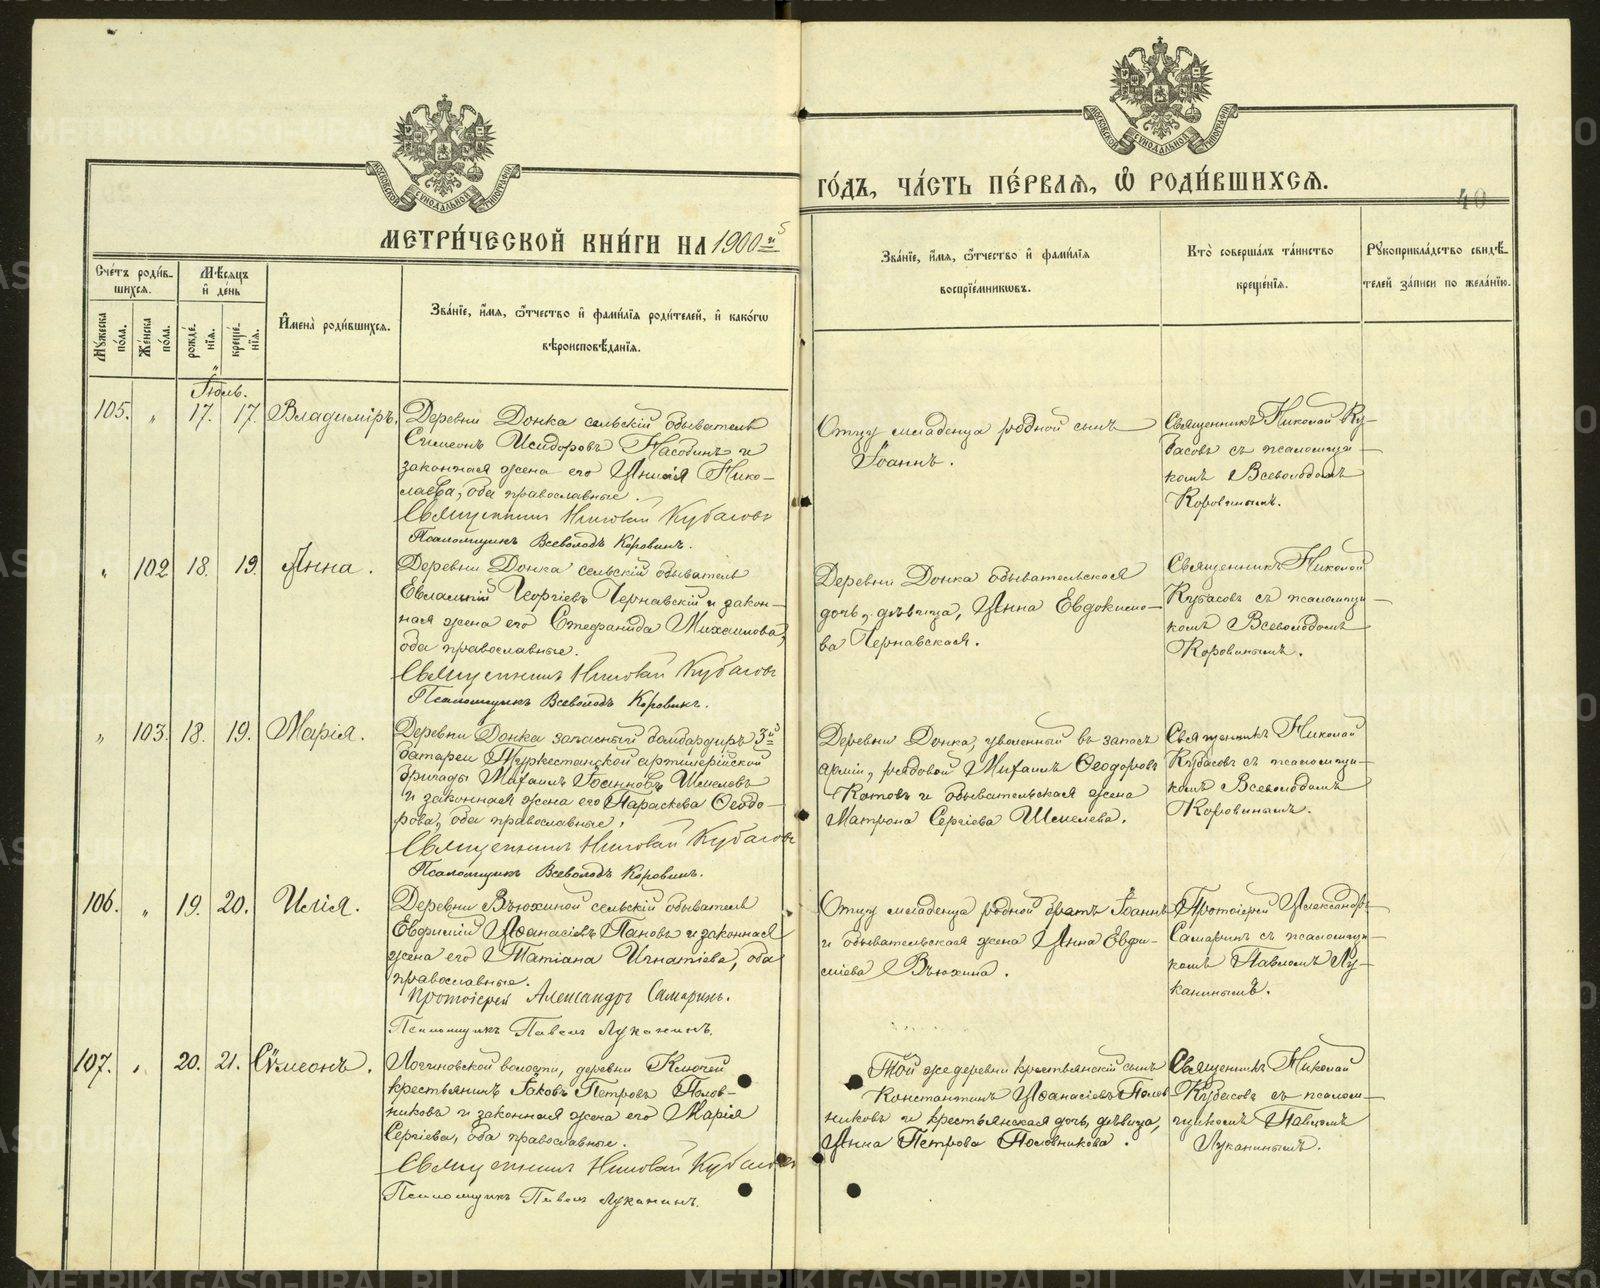 МЕТРИ́ЧЕСКОЙ КНИ́ГИ НА 1900-й 5
ГО́ДЪ, ЧА́СТЬ ПЕ́РВАѦ, Ѿ РОДИ́ВШИХСѦ.
40
МОСКОВСКОЙ СѴНОДАЛЬНОЙ ТИПОГРАФІИ
МОСКОВСКОЙ СѴНОДАЛЬНОЙ ТИПОГРАФІИ
Сче́тъ роди́вшихсѧ.
Му́жеска по́ла.
Же́нска по́ла.
Мѣ́сѧцъ и҆ де́нь
рожде́нїѧ.
креще́нїѧ.
И҆мена̀ роди́вшихсѧ.
Зва́нїе, и҆́мѧ, ѻ҆́тчество и҆ фами́лїѧ роди́телей, и҆ како́гѡ
вѣроисповѣ́данїѧ.
Зва́нїе, и҆́мѧ, ѻ҆́тчество и҆ фами́лїѧ
воспрїе́мникѡвъ.
Кто̀ соверша́лъ та́инство
креще́нїѧ.
Рꙋкоприкла́дство свидѣ́-
телей за́писи по жела́нїю.
Іюль.
105. " 17. 17. Владиміръ.
Деревни Донка сельскій обыватель
Симеонъ Исидоровъ Насобинъ и
законная жена его Анисія Нико-
лаева, оба православные.
Священникъ Николай Кубасовъ
Псаломщикъ Всеволодъ Коровинъ.
Отцу младенца родной сынъ
Іоаннъ.
Священникъ Николай Ку-
басовъ съ псаломщи-
комъ Всеволодомъ
Коровинымъ.
" 102 18. 19. Анна.
Деревни Донка сельскій обыватель
Евлампій Георгіевъ Чернавскій и закон-
ная жена его Стефанида Михаилова,
оба православные.
Священникъ Николай Кубасовъ
Псаломщикъ Всеволодъ Коровинъ.
Деревни Донка обывательская
дочь, дѣвица, Анна Евдокимо-
ва Чернавская.
Священникъ Николай
Кубасовъ съ псаломщи-
комъ Всеволодомъ
Коровинымъ.
" 103. 18. 19. Марія.
Деревни Донка запасный бомбардиръ 3-й
батареи Туркестанской артиллерійской
бригады Михаилъ Іоанновъ Шмелевъ
и законная жена его Параскева Ѳеодо-
рова, оба православные,
Священникъ Николай Кубасовъ
Псаломщикъ Всеволодъ Коровинъ.
Деревни Донка, уволенный въ запасъ
арміи, рядовой Михаилъ Ѳеодоровъ
Котовъ и обывательская жена
Матрона Сергіева Шмелева.
Священникъ Николай
Кубасовъ съ псаломщи-
комъ Всеволодомъ
Коровинымъ.
106. " 19. 20. Илія.
Деревни Вьюхиной сельскій обыватель
Евфимій Аѳанасіевъ Пановъ и законная
жена его Татіана Игнатіева, оба
православные.
Протоіерей Александръ Самаринъ.
Псаломщикъ Павелъ Луканинъ.
Отцу младенца родной братъ Іоаннъ
и обывательская жена Анна Евфи-
міева Вьюхина.
Протоіерей Александръ
Самаринъ съ псаломщи-
комъ Павломъ Лу-
канинымъ.
107. " 20. 21. Сѵмеонъ.
Логиновской волости, деревни Ключей
крестьянинъ Іаковъ Петровъ Полов-
никовъ и законная жена его Марія
Сергіева, оба православные.
Священникъ Николай Кубасовъ
Псаломщикъ Павелъ Луканинъ.
Той же деревни крестьянскій сынъ
Константинъ Аѳанасіевъ Полов
никовъ и крестьянская дочь, дѣвица,
Анна Петрова Половникова.
Священникъ Николай
Кубасовъ съ псалом-
щикомъ Павломъ
Луканинымъ.
METRIKI.GASO-URAL.RU